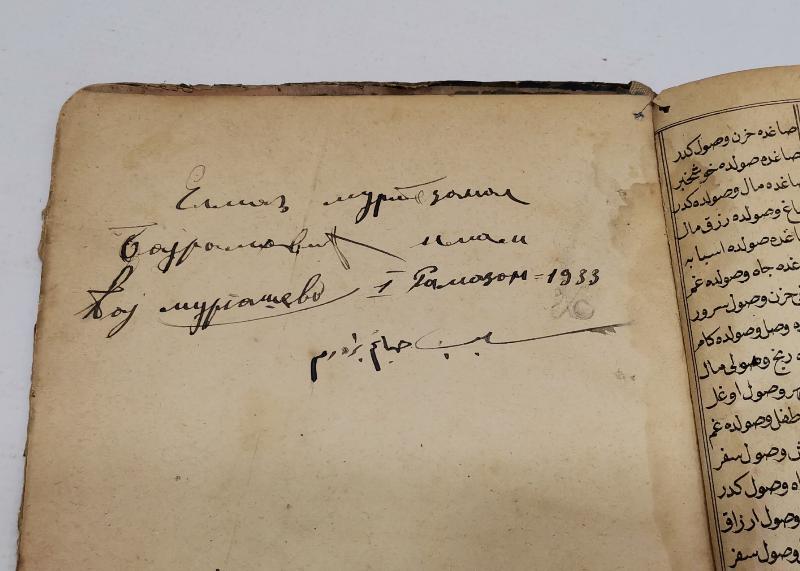 Елмаз
Бајрамовић имам
Кој мурташево I Рамазон = 1933
سبب حیاتم برادرم
صاغده حزن وصول کدر
صاغده صولده خوشخبر
صاغده مال وصولده کدر
وصولده رزق مال
صولده
جاه وصولده غم
حزن وصول سرور
وصل وصولده کام
رنج وصولی مال
وصول اوغل
طفل وصولده غم
وصول سفر
وصول کدر
وصول ارزاق
وصول سفر